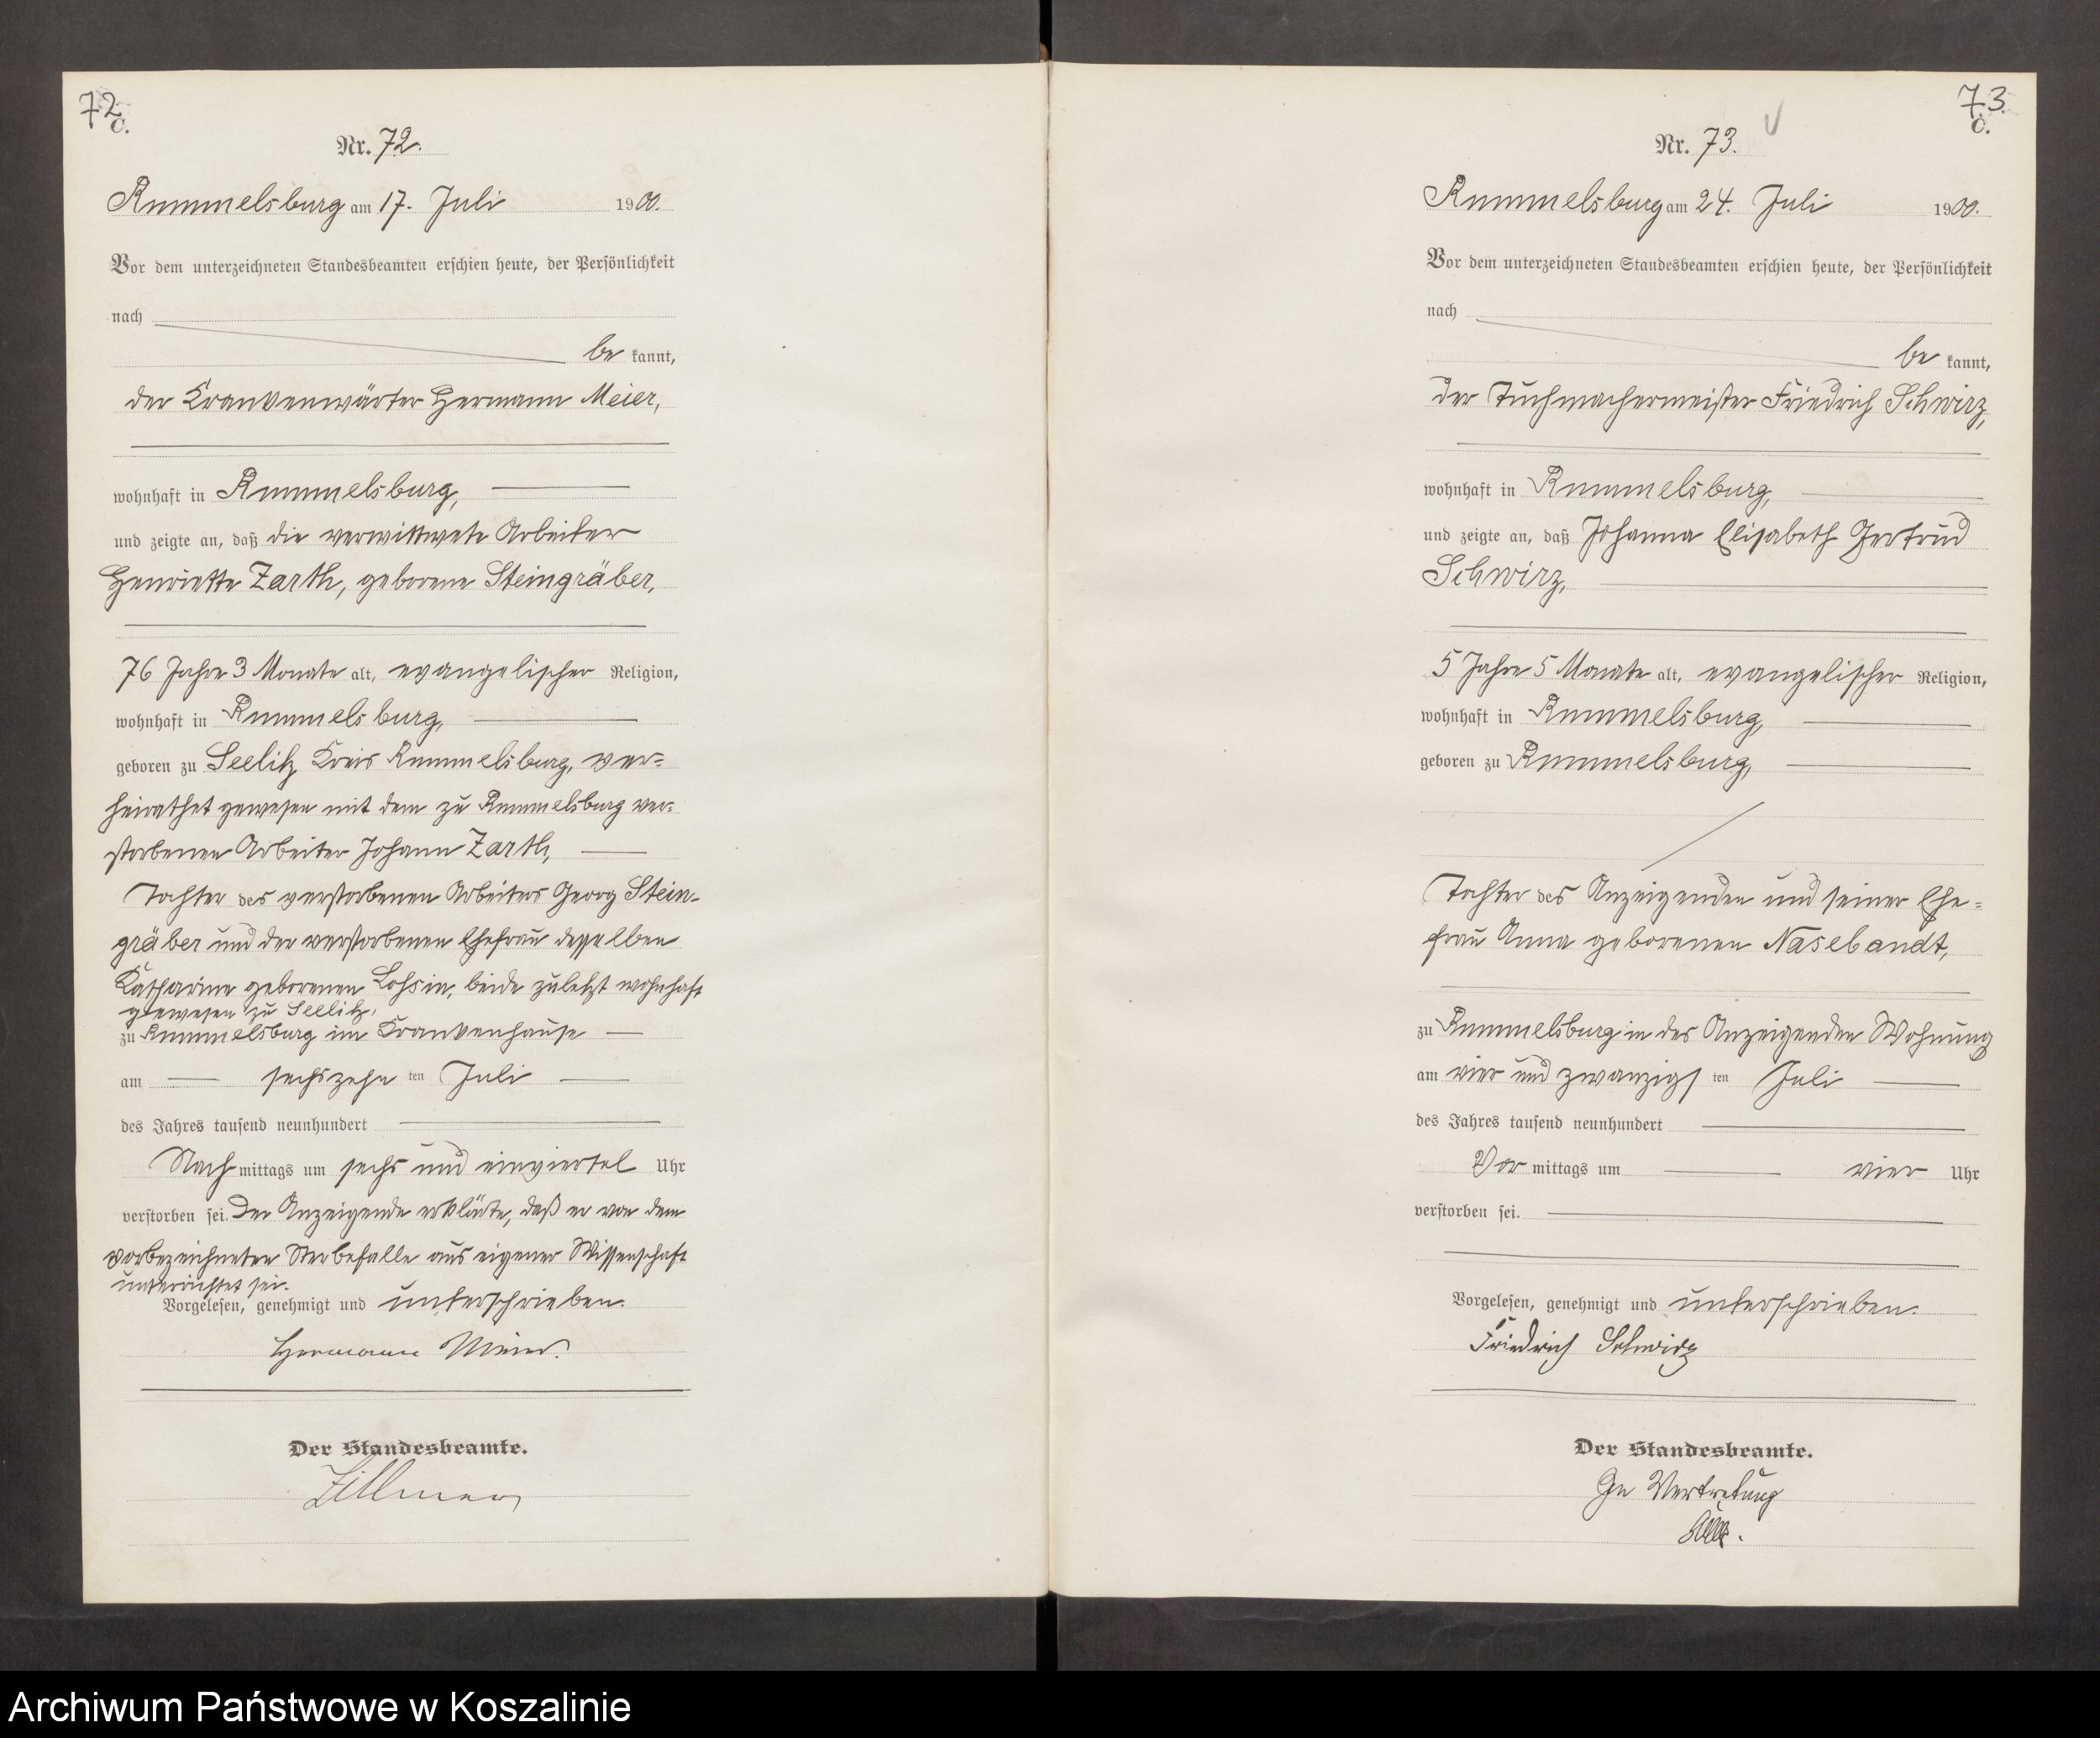 72.
C.
Nr. 72.
Rummelsburg am 17. Juli 1900.
Vor dem unterzeichneten Standesbeamten erschien heute, der Persönlichkeit
nach
be kannt,
der Krankenwärter Hermann Meier,
wohnhaft in Rummelsburg,
und zeigte an, daß die verwittwete Arbeiter
Henriette Zarth, geborene Steingräber,
76 Jahre 3 Monate alt, evangelischer Religion,
wohnhaft in Rummelsburg,
geboren zu Seelitz Kreis Rummelsburg, ver=
heirathet gewesen mit dem zu Rummelsburg ver=
storbenen Arbeiter Johann Zarth,
Tochter des verstorbenen Arbeiters Georg Stein-
gräber und der verstorbenen Ehefrau desselben
Katharine geborenen Lohsin, beide zuletzt wohnhaft
gewesen zu Seelitz,
zu Rummelsburg im Krankenhause
am sechszehn ten Juli
des Jahres tausend neunhundert
Nach mittags um sechs und einviertel Uhr
verstorben sei. Der Anzeigende erklärte, daß er von dem
vorbezeichneten Sterbefalle aus eigener Wissenschaft
unterrichtet sei.
Vorgelesen, genehmigt und unterschrieben.
Hermann Meier.
Der Standesbeamte.
Zillmer
73.
C.
Nr. 73.
Rummelsburg am 24. Juli 1900.
Vor dem unterzeichneten Standesbeamten erschien heute, der Persönlichkeit
nach
be kannt,
der Tuchmachermeister Friedrich Schwirz,
wohnhaft in Rummelsburg,
und zeigte an, daß Johanna Elisabeth Gertrud
Schwirz,
5 Jahre 5 Monate alt, evangelischer Religion,
wohnhaft in Rummelsburg,
geboren zu Rummelsburg,
Tochter des Anzeigenden und seiner Ehe=
frau Anna geborenen Nasebandt,
zu Rummelsburg in des Anzeigenden Wohnung
am vier und zwanzigs ten Juli
des Jahres tausend neunhundert
Vor mittags um vier Uhr
verstorben sei.
Vorgelesen, genehmigt und unterschrieben.
Friedrich Schwirz
Der Standesbeamte.
In Vertretung
Archiwum Państwowe w Koszalinie